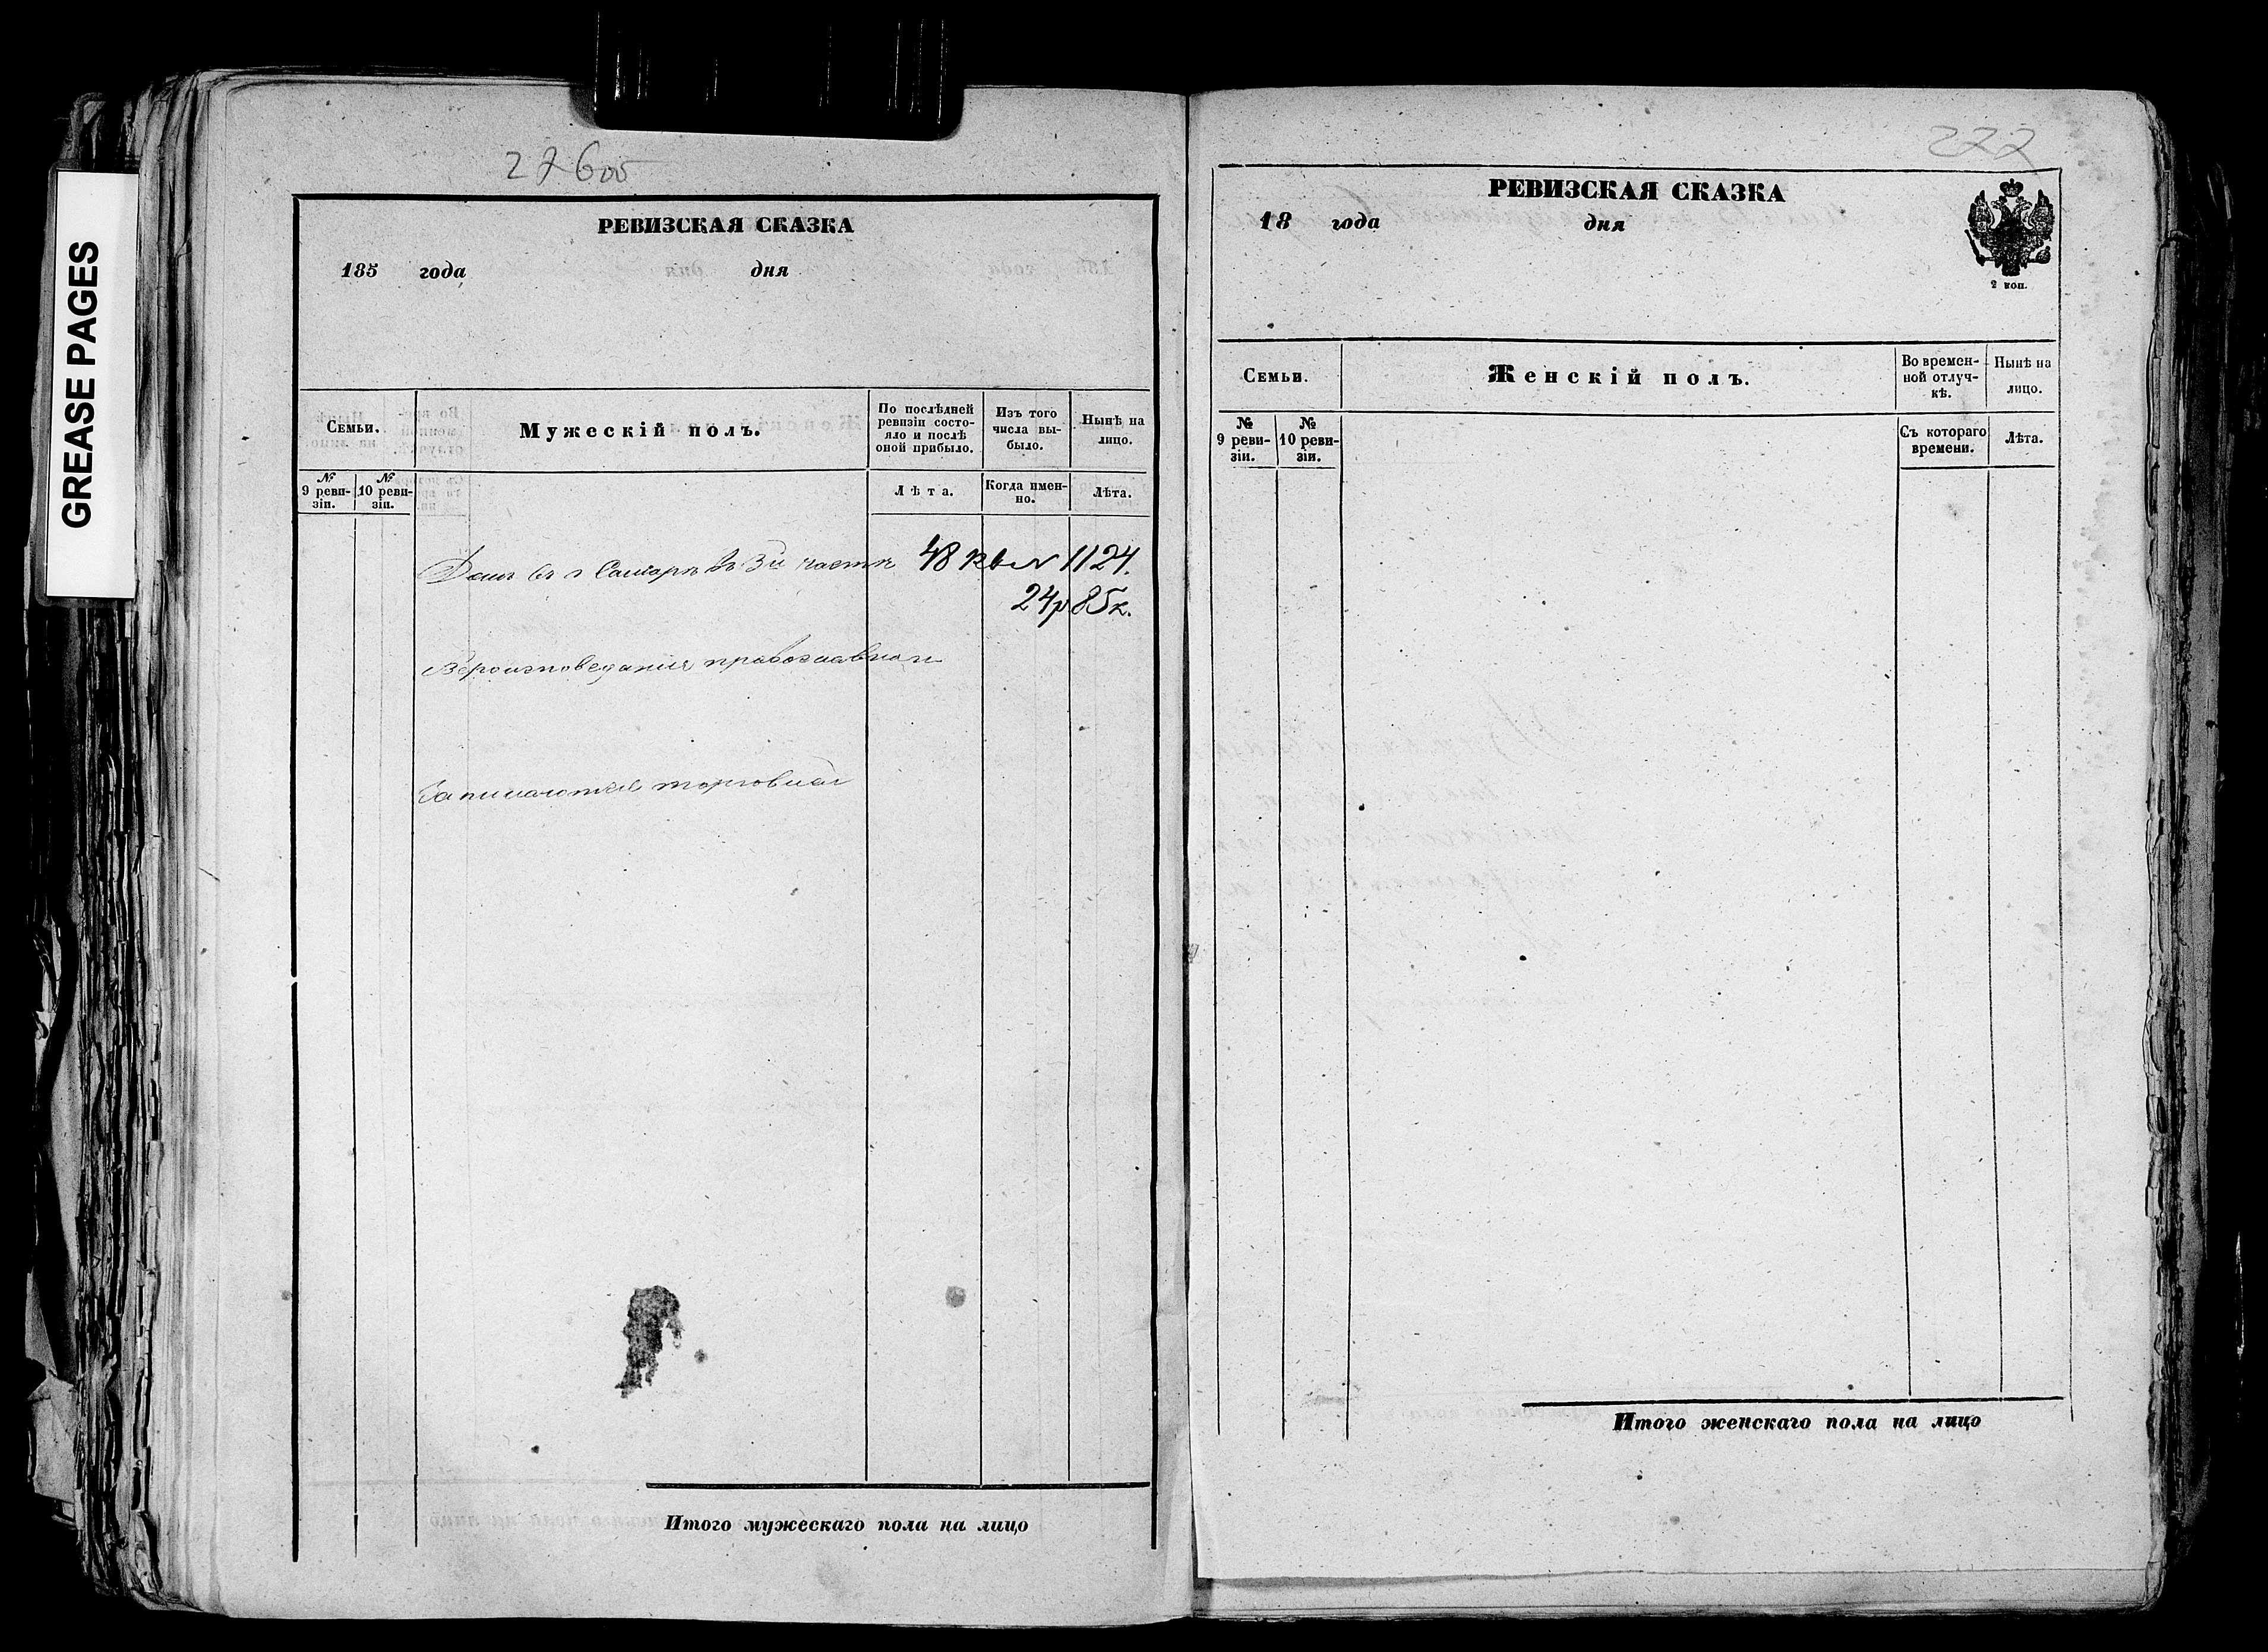 GREASE PAGES
РЕВИЗСКАЯ СКАЗКА
185 года дня
Семьи.
Мужескій полъ.
По послѣдней ревизіи состояло и послѣ оной прибыло.
Изъ того числа выбыло.
Нынѣ на лицо.
№ 9 ревизіи.
№ 10 ревизіи.
Лѣта.
Когда именно.
Лѣта.
Домъ въ г Самарѣ въ 3й части 48 кв № 1124.
24р 85к.
Вероисповедания православнаго
Занимаются торговлей
Итого мужескаго пола на лицо
222
РЕВИЗСКАЯ СКАЗКА
18 года дня
2 коп.
Семьи.
Женскій полъ.
Во временной отлучкѣ.
Нынѣ на лицо.
№ 9 ревизіи.
№ 10 ревизіи.
Съ котораго времени.
Лѣта.
Итого женскаго пола на лицо